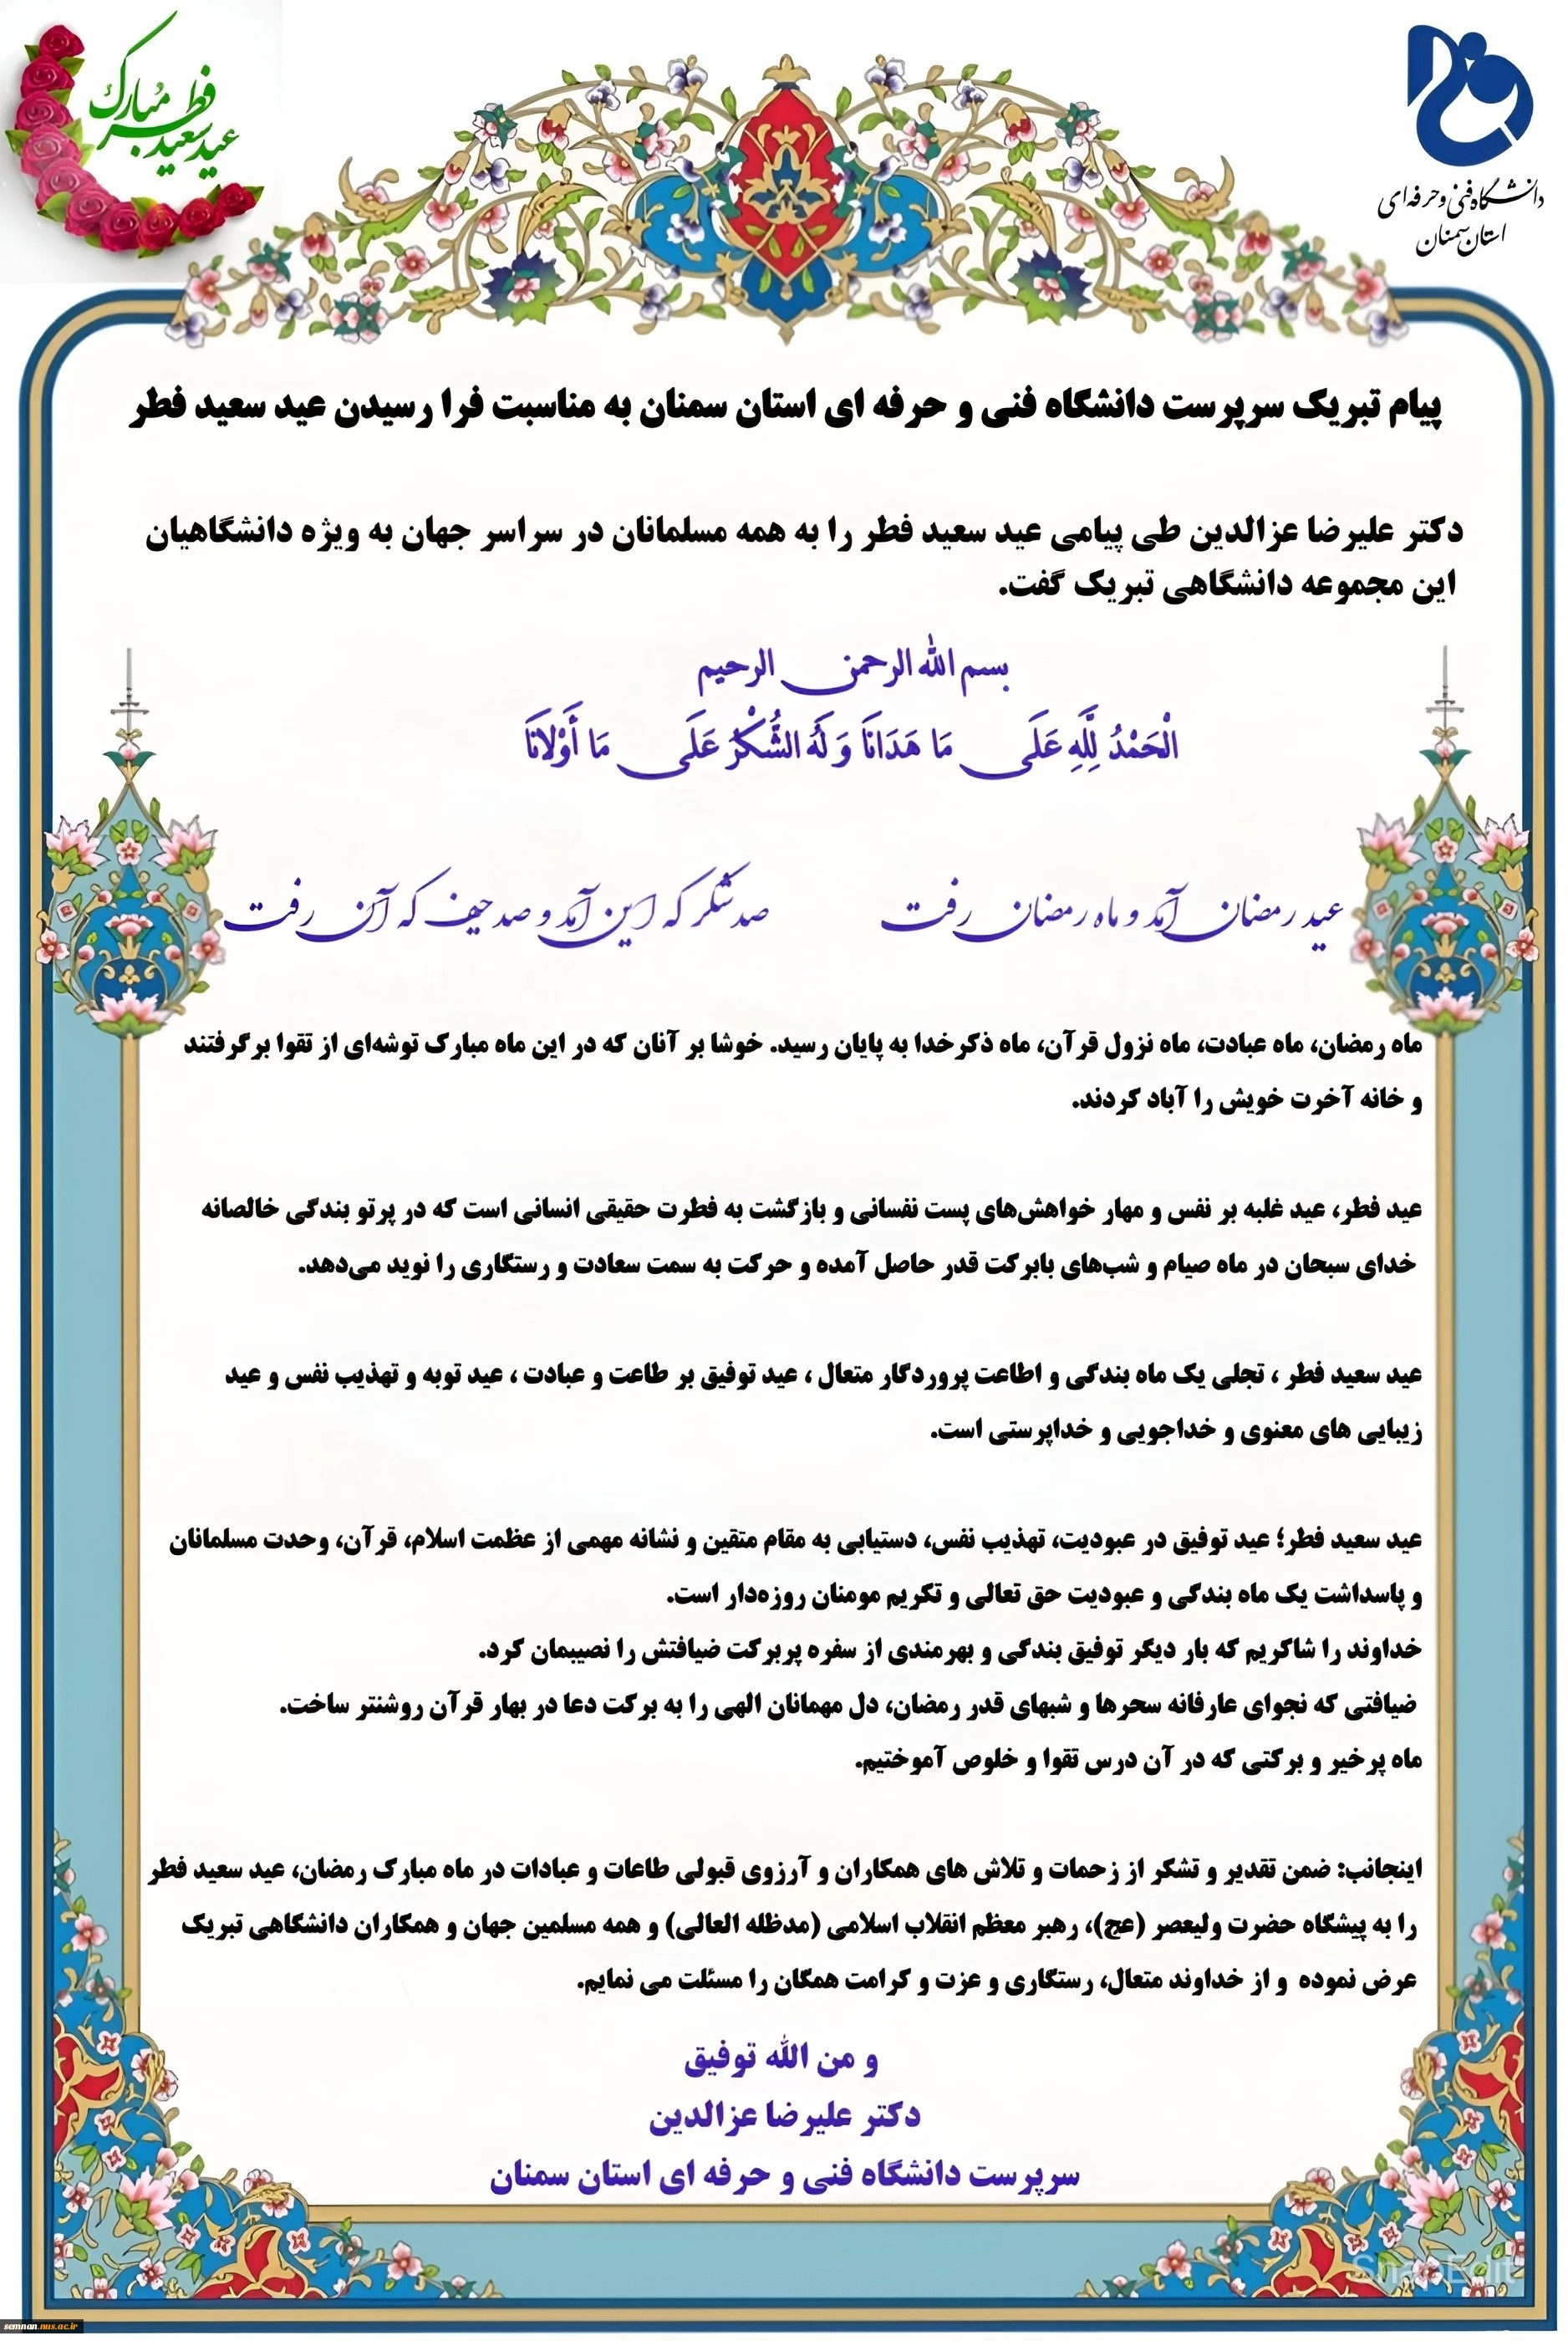 عید سعید فطر مبارک
دانشگاه فنی و حرفه‌ای
استان سمنان
پیام تبریک سرپرست دانشگاه فنی و حرفه ای استان سمنان به مناسبت فرا رسیدن عید سعید فطر
دکتر علیرضا عزالدین طی پیامی عید سعید فطر را به همه مسلمانان در سراسر جهان به ویژه دانشگاهیان
این مجموعه دانشگاهی تبریک گفت.
بسم الله الرحمن الرحیم
الْحَمْدُ لِلَّهِ عَلَى مَا هَدَانَا وَ لَهُ الشُّكْرُ عَلَى مَا أَوْلَانَا
عید رمضان آمد و ماه رمضان رفت صد شکر که این آمد و صد حیف که آن رفت
ماه رمضان، ماه عبادت، ماه نزول قرآن، ماه ذکرخدا به پایان رسید. خوشا بر آنان که در این ماه مبارک توشه‌ای از تقوا برگرفتند
و خانه آخرت خویش را آباد کردند.
عید فطر، عید غلبه بر نفس و مهار خواهش‌های پست نفسانی و بازگشت به فطرت حقیقی انسانی است که در پرتو بندگی خالصانه
خدای سبحان در ماه صیام و شب‌های بابرکت قدر حاصل آمده و حرکت به سمت سعادت و رستگاری را نوید می‌دهد.
عید سعید فطر ، تجلی یک ماه بندگی و اطاعت پروردگار متعال ، عید توفیق بر طاعت و عبادت ، عید توبه و تهذیب نفس و عید
زیبایی های معنوی و خداجویی و خداپرستی است.
عید سعید فطر؛ عید توفیق در عبودیت، تهذیب نفس، دستیابی به مقام متقین و نشانه مهمی از عظمت اسلام، قرآن، وحدت مسلمانان
و پاسداشت یک ماه بندگی و عبودیت حق تعالی و تکریم مومنان روزه‌دار است.
خداوند را شاکریم که بار دیگر توفیق بندگی و بهرمندی از سفره پربرکت ضیافتش را نصیبمان کرد.
ضیافتی که نجوای عارفانه سحرها و شبهای قدر رمضان، دل مهمانان الهی را به برکت دعا در بهار قرآن روشنتر ساخت.
ماه پرخیر و برکتی که در آن درس تقوا و خلوص آموختیم.
اینجانب: ضمن تقدیر و تشکر از زحمات و تلاش های همکاران و آرزوی قبولی طاعات و عبادات در ماه مبارک رمضان، عید سعید فطر
را به پیشگاه حضرت ولیعصر (عج)، رهبر معظم انقلاب اسلامی (مدظله العالی) و همه مسلمین جهان و همکاران دانشگاهی تبریک
عرض نموده و از خداوند متعال، رستگاری و عزت و کرامت همگان را مسئلت می نمایم.
و من الله توفیق
دکتر علیرضا عزالدین
سرپرست دانشگاه فنی و حرفه ای استان سمنان
SnapEdit
semnan.nus.ac.ir